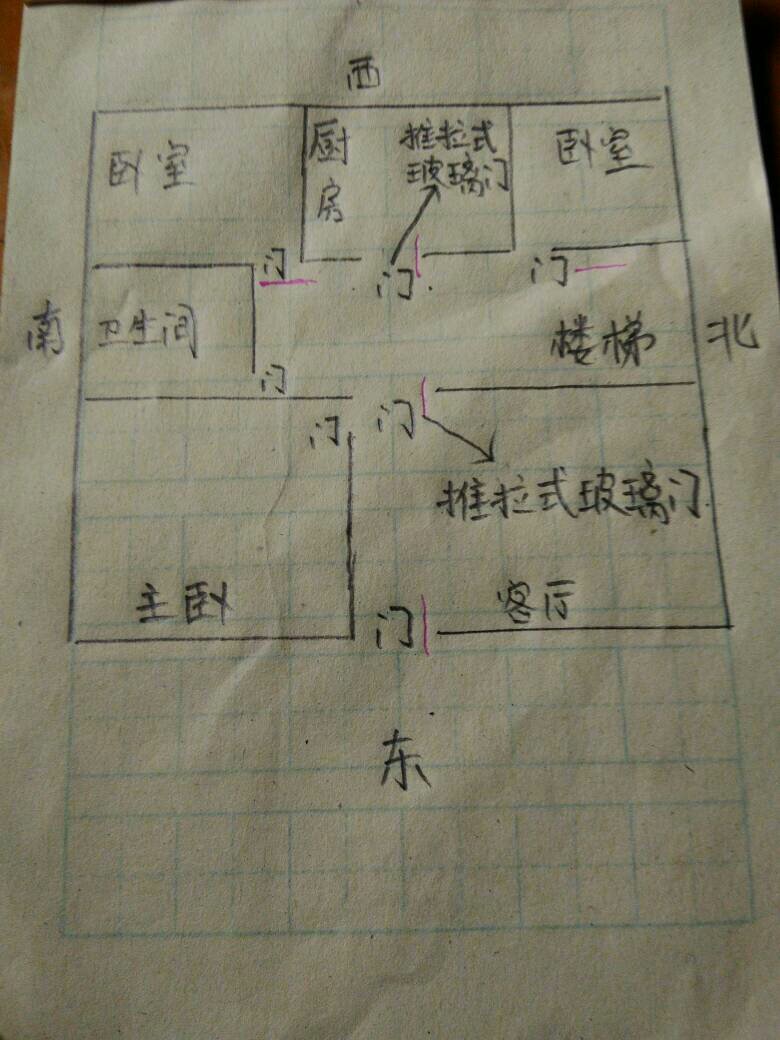 西
卧室
厨房
推拉式
玻璃门
卧室
门
门
门
南
卫生间
楼梯
北
门
门
门
推拉式玻璃门
主卧
门
客厅
东